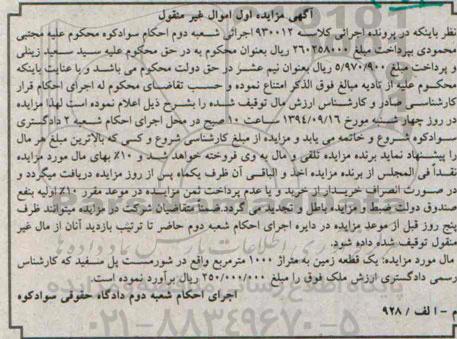 آگهی مزایده اول اموال غیر منقول
نظر باینکه در پرونده اجرائی کلاسه ۹۳۰۰۱۲ اجرائی شعبه دوم احکام سوادکوه محکوم علیه مجتبی
محمودی بپرداخت مبلغ ۲۶۰۲۵۸۰۰۰ ریال بعنوان محکوم به در حق محکوم علیه سید سعید زینلی
و پرداخت مبلغ ۵/۹۷۰/۹۰۰ ریال بعنوان نیم عشر در حق دولت محکوم می باشند و با عنایت باینکه
محکوم علیه از تادیه مبالغ فوق الذکر امتناع نموده و حسب تقاضای محکوم له اجرای احکام قرار
کارشناسی صادر و کارشناس ارزش مال توقیف شده را بشرح ذیل اعلام نموده است لهذا مزایده
در روز چهار شنبه مورخ ۱۳۹۴/۰۹/۱۶ ساعت ۱۰ صبح در محل اجرای احکام شعبه ۲ دادگستری
سوادکوه شروع و خاتمه می یابد و مزایده از مبلغ کارشناسی شروع و کسی که بالاترین مبلغ هر مال
را پیشنهاد نماید برنده مزایده تلقی و مال به وی فروخته خواهد شد و ۱۰٪ بهای مال مورد مزایده
نقداً فی المجلس از برنده مزایده اخذ و الباقی آن ظرف یکماه پس از روز مزایده دریافت میگردد و
در صورت انصراف خریدار از خرید و یا عدم پرداخت ثمن مزایده در موعد مقرر ۱۰٪ اولیه بنفع
صندوق دولت ضبط و مزایده باطل و تجدید می گردد. ضمنا متقاضیان شرکت در مزایده میتوانند ظرف
پنج روز قبل از موعد مزایده در دایره اجرای احکام شعبه دوم حاضر تا ترتیب بازدید آنان از مال غیر
منقول توقیف شده داده شود.
مال مورد مزایده: یک قطعه زمین به متراژ ۱۰۰۰ مترمربع واقع در شورمست پل سفید که کارشناس
رسمی دادگستری ارزش ملک فوق را مبلغ ۳۵۰/۰۰۰/۰۰۰ ریال برآورد نموده است
اجرای احکام شعبه دوم دادگاه حقوقی سوادکوه
م - الف / ۹۲۸
۰۲۱-۸۸۳۴۹۶۷۰-۵